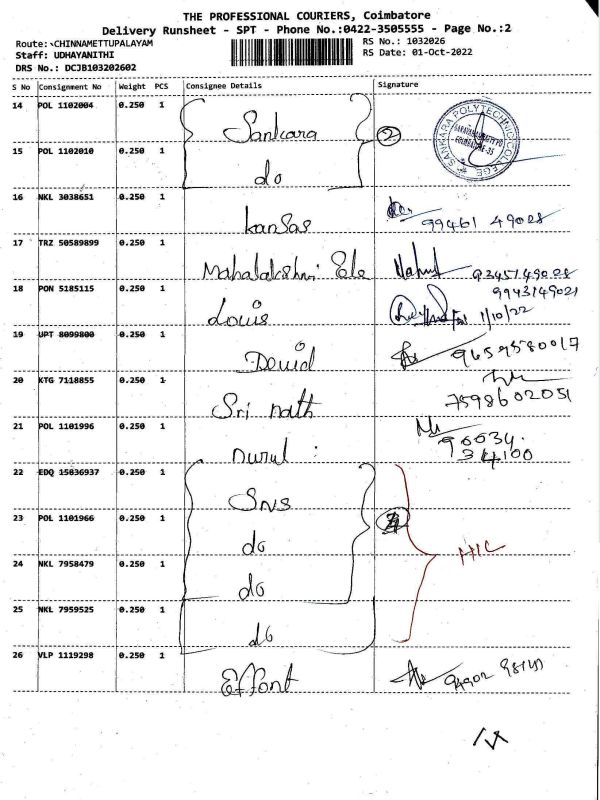 THE PROFESSIONAL COURIERS, Coimbatore
Delivery Runsheet - SPT - Phone No.:0422-3505555 - Page No.:2
Route: CHINNAMETTUPALAYAM
RS No.: 1032026
Staff: UDHAYANITHI
RS Date: 01-Oct-2022
DRS No.: DCJB103202602
S No Consignment No Weight PCS Consignee Details Signature
14 POL 1102004 0.250 1 Sankara 2
SANKARA POLYTECHNIC COLLEGE
15 POL 1102010 0.250 1 do
16 NKL 3038651 0.250 1 Kansas 99461 49028
17 TRZ 50589899 0.250 1 Mahalakshmi Ele 9345149028
18 PON 5185115 0.250 1 Louis 9943149021
1/10/22
19 UPT 8099800 0.250 1 David 9659580017
20 KTG 7118855 0.250 1 Sri nath 7598602051
21 POL 1101996 0.250 1 nurul : 90034
34100
22 EDQ 15036937 0.250 1 SNS
23 POL 1101966 0.250 1 do
24 NKL 7958479 0.250 1 do
25 NKL 7959525 0.250 1 do
26 VLP 1119298 0.250 1 Effont